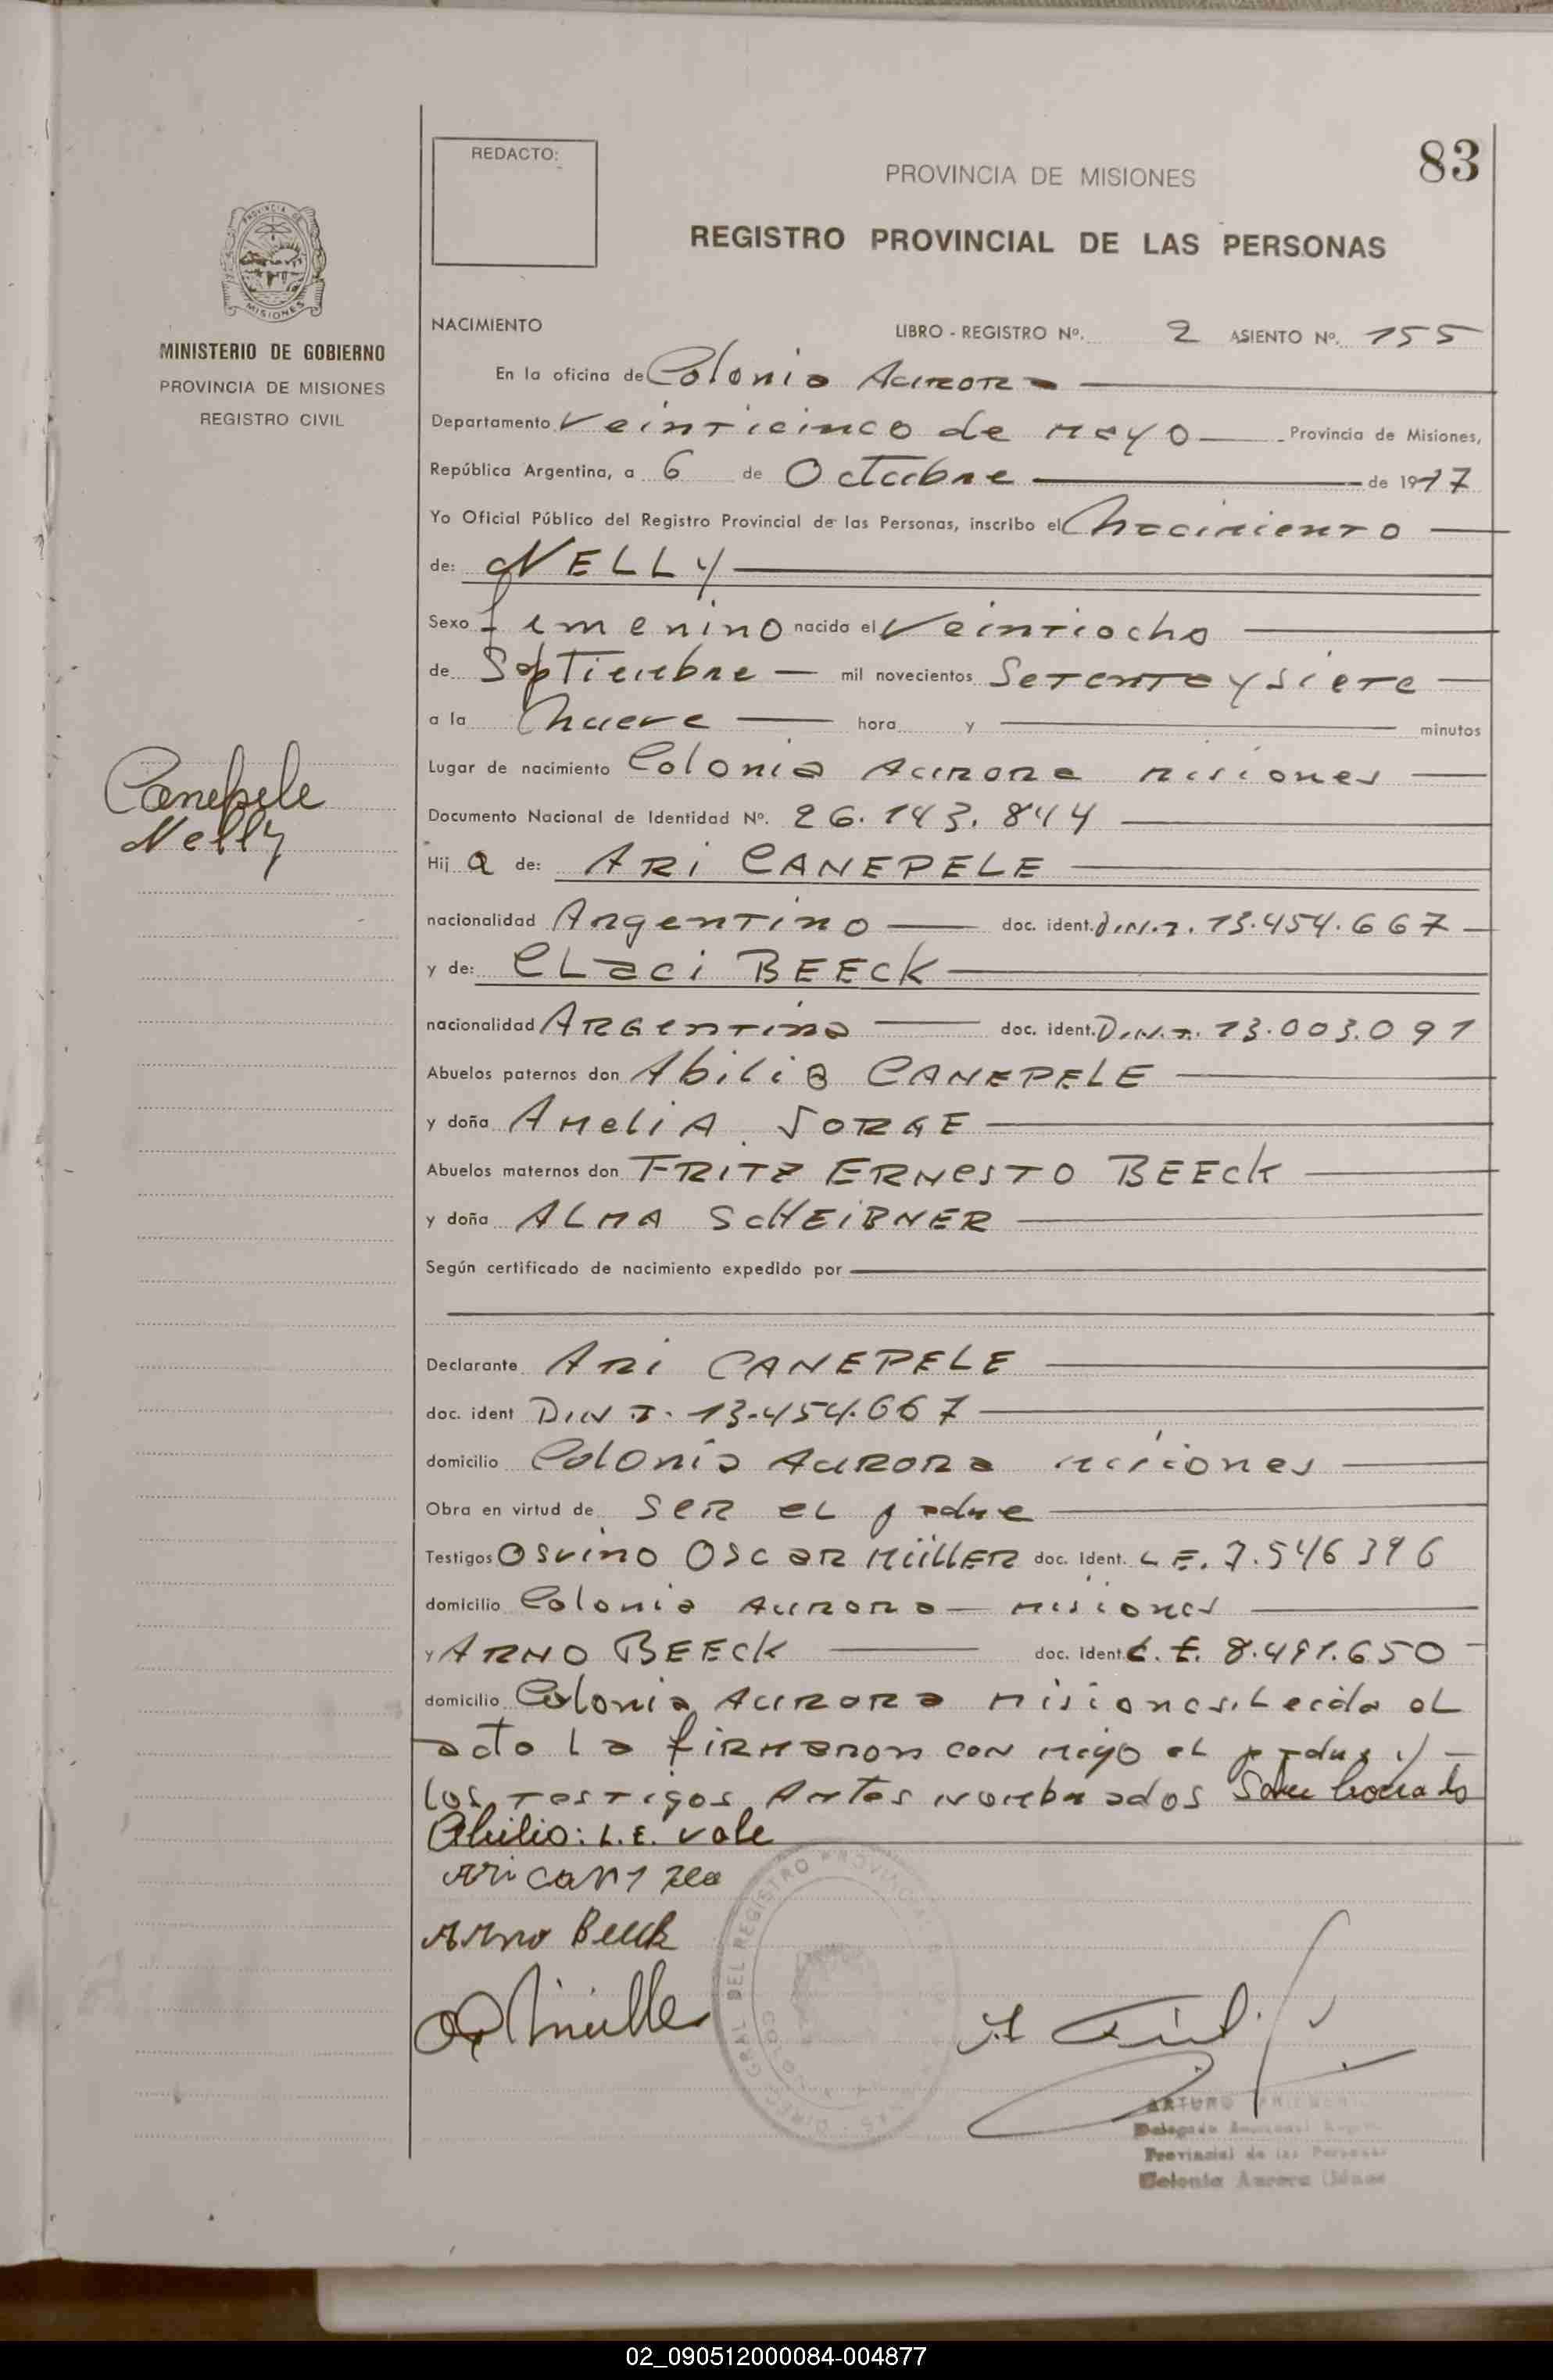 REDACTO:
83
PROVINCIA DE MISIONES
REGISTRO PROVINCIAL DE LAS PERSONAS
PROVINCIA DE
MISIONES
MINISTERIO DE GOBIERNO
PROVINCIA DE MISIONES
REGISTRO CIVIL
NACIMIENTO LIBRO - REGISTRO Nº. 2 ASIENTO Nº. 155
En la oficina de Colonia Aurora
Departamento Veinticinco de Mayo Provincia de Misiones,
República Argentina, a 6 de Octubre de 1977
Yo Oficial Público del Registro Provincial de las Personas, inscribo el Nacimiento
de: NELLY
Sexo femenino nacido el Veintiocho
de Septiembre mil novecientos Setenta y siete
a la Nueve hora y minutos
Lugar de nacimiento Colonia Aurora Misiones
Canepele
Nelly
Documento Nacional de Identidad Nº. 26.143.844
Hij a de: ARI CANEPELE
nacionalidad Argentino doc. ident. D.N.I. 13.454.667
y de: CLaci BEECK
nacionalidad ARGentina doc. ident. D.N.I. 13.003.091
Abuelos paternos don Abilio CANEPELE
y doña AMeliA JORGE
Abuelos maternos don FRITZ ERNESTO BEECK
y doña ALMA SCHEIBNER
Según certificado de nacimiento expedido por
Declarante ARI CANEPELE
doc. ident D.N.I. 13.454.667
domicilio Colonia AURORA Misiones
Obra en virtud de ser el padre
Testigos OSVINO OSCAR MüLLER doc. Ident. L.E. 7.546396
domicilio Colonia AURORA - Misiones
y ARNO BEECK doc. Ident. L.E. 8.491.650
domicilio Colonia AURORA Misiones. Leida el
acta la firmaron con migo el padre y
los testigos Antes nombrados Sobre borrado
Abilio: L.E. vale
Ari
Arno Beeck
Müller
DIREC. GRAL. DEL REGISTRO PROVINCIAL
ARTURO
Delegado
Provincial de las Personas
Colonia Aurora
02_090512000084-004877